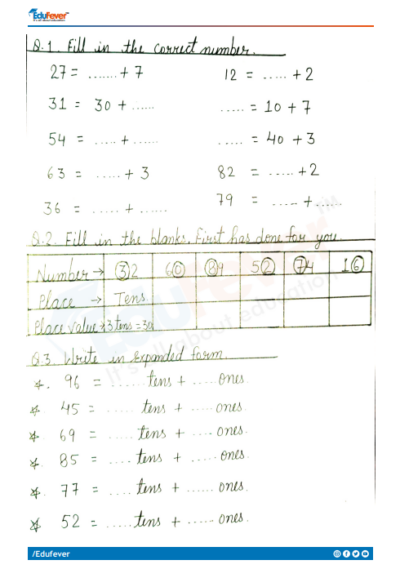 EduFever
Q.1. Fill in the correct number.
27 = ...... + 7 12 = ..... + 2
31 = 30 + ...... ..... = 10 + 7
54 = ..... + ...... ..... = 40 + 3
63 = ..... + 3 82 = ..... + 2
36 = ..... + ...... 79 = ..... + .....
Q.2. Fill in the blanks. First has done for you.
Number → 32 60 89 52 74 16
Place → Tens
Place Value → 3 tens = 30
Q.3 Write in expanded form.
*. 96 = ...... tens + .....ones.
* 45 = ..... tens + ..... ones
* 69 = .... tens + .... ones.
* 85 = .... tens + ..... ones.
* 77 = .... tens + ...... ones.
* 52 = .....tens + ..... ones.
/Edufever